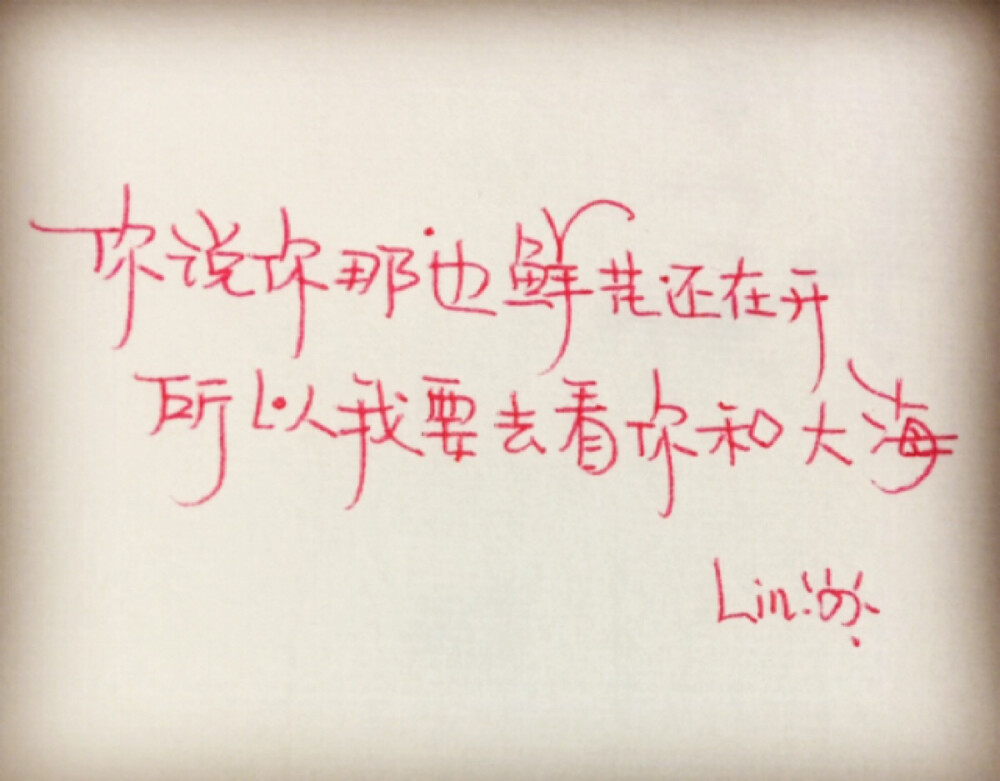 你说你那边鲜花还在开
所以我要去看你和大海
Lin